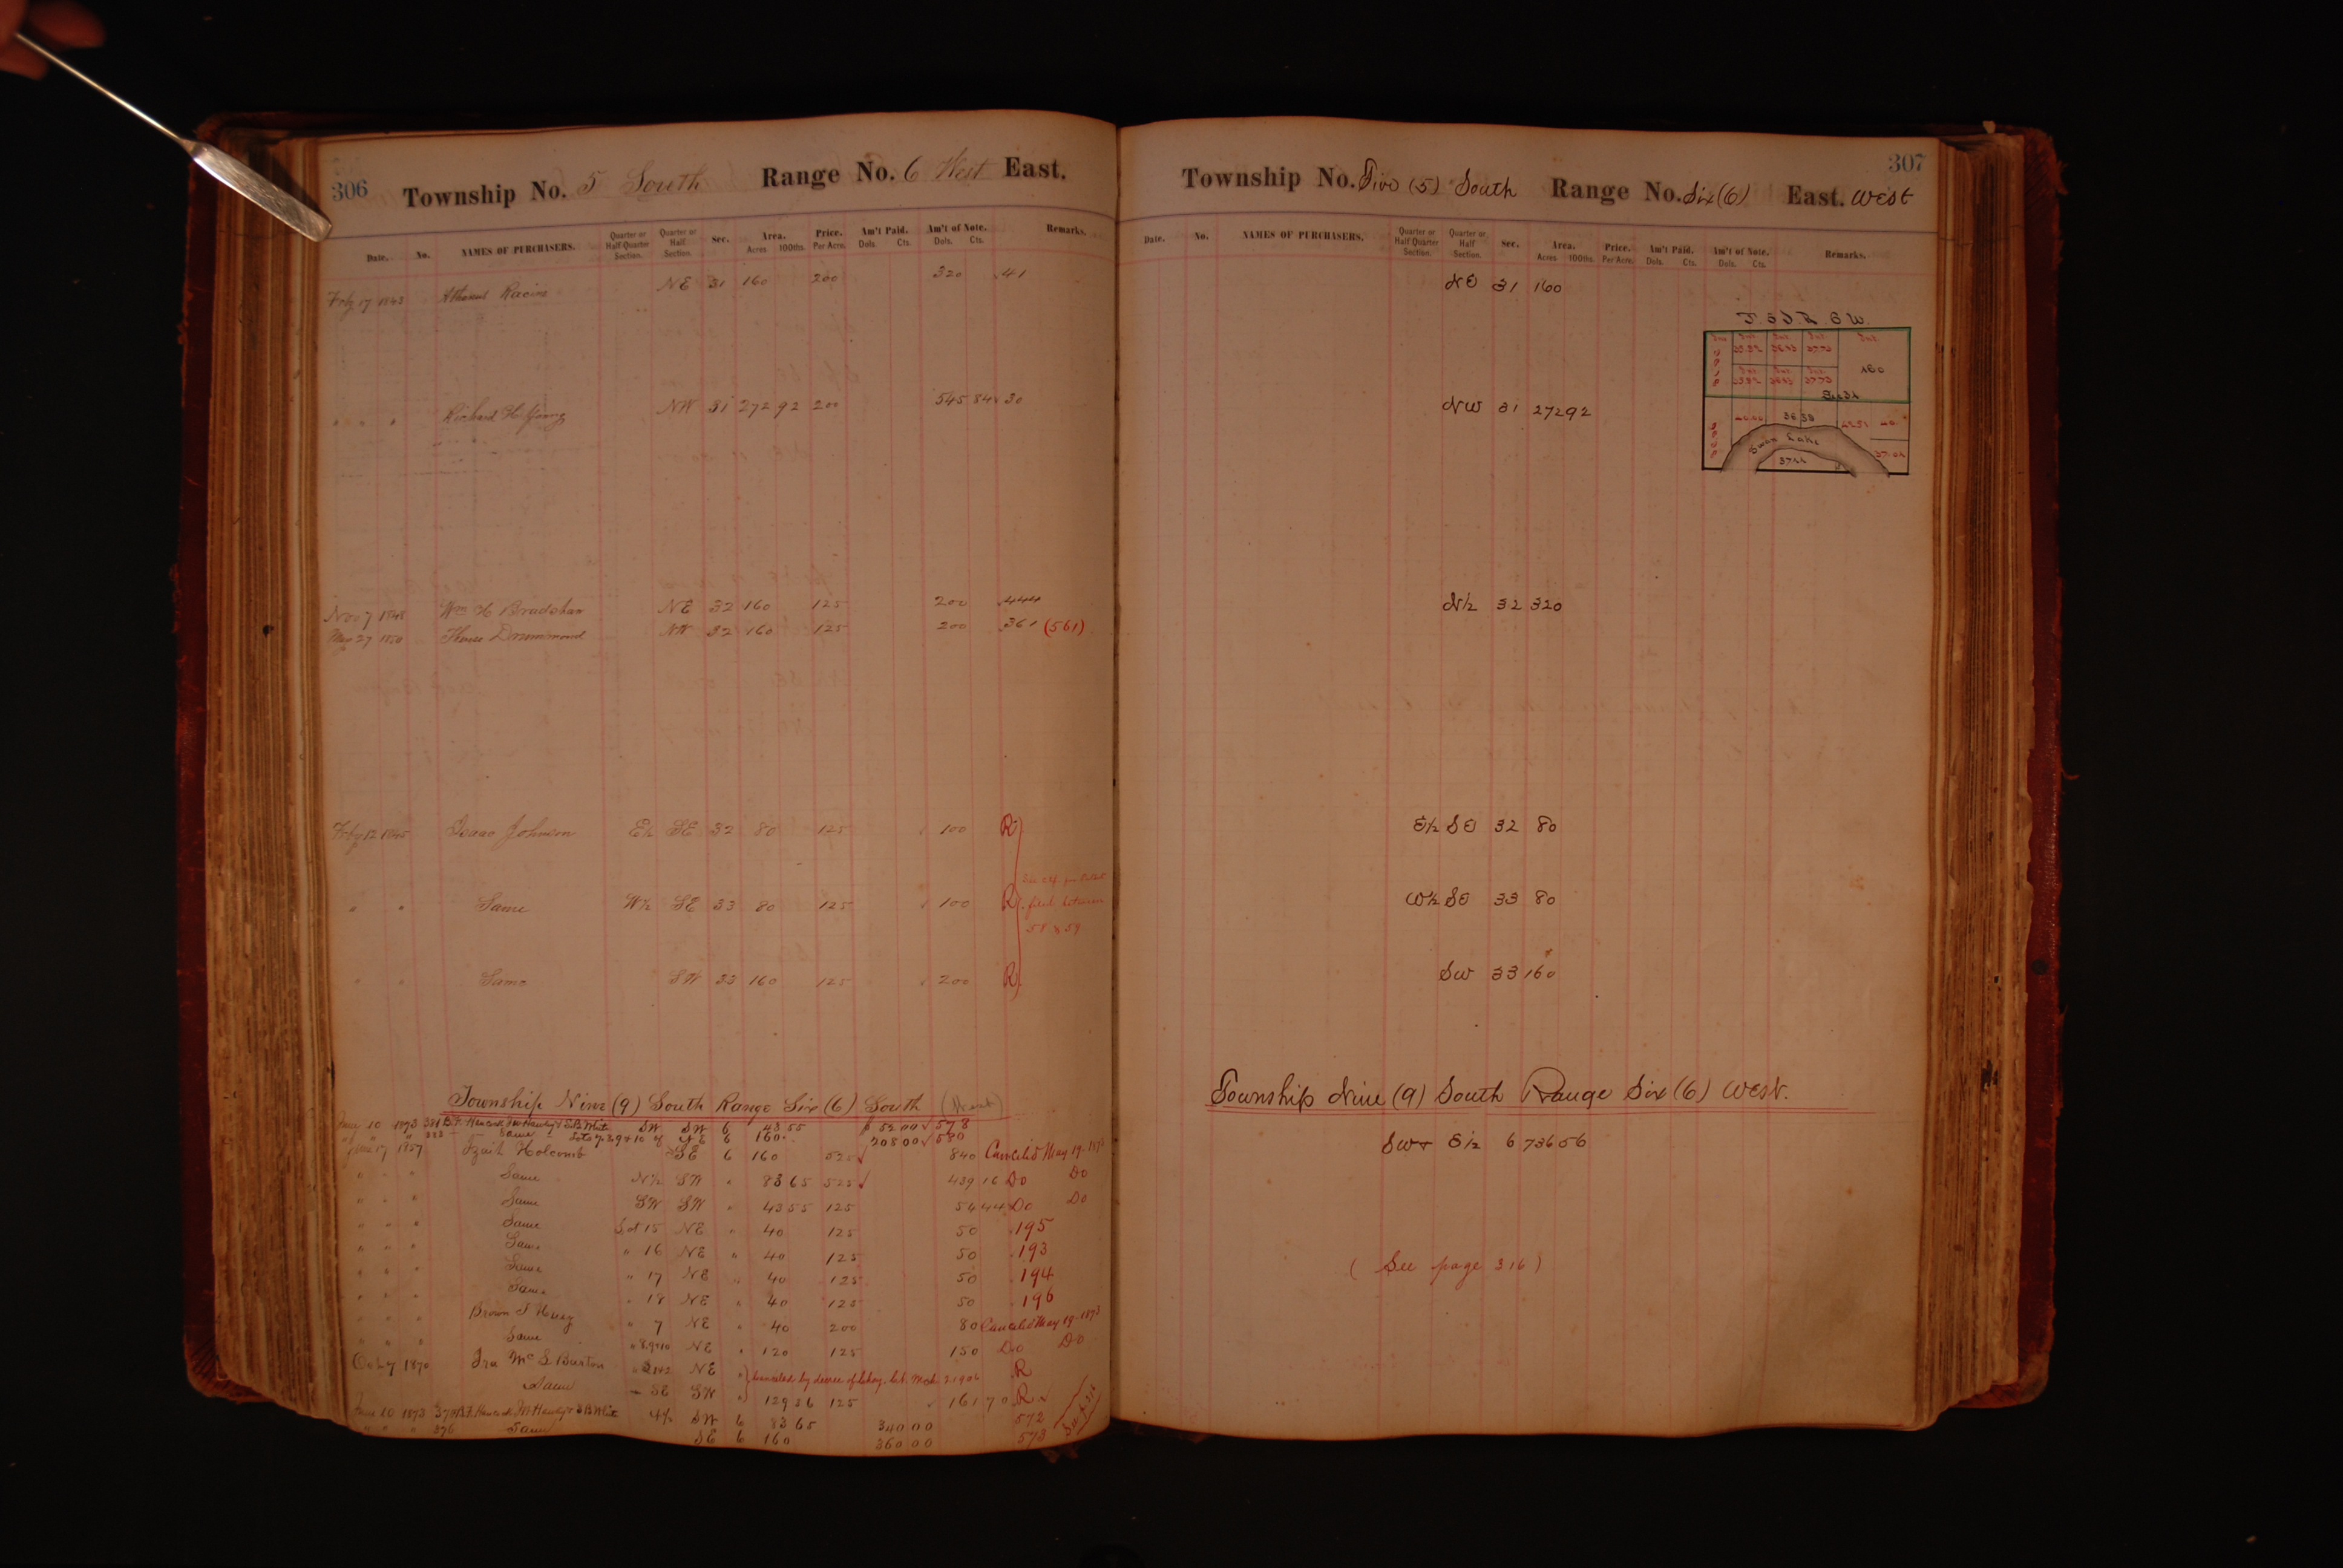 306 Township No. 5 South Range No. 6 West East.
Date. No. NAMES OF PURCHASERS. Quarter or Half Quarter Section. Quarter or Half Section. Sec. Area. Acres 100ths. Price. Per Acre. Am't Paid. Dols. Cts. Am't of Note. Dols. Cts. Remarks.
Feby 17 1843 Racine NE 31 160 200 320 41
" " " Richard H Young NW 31 272 92 200 545 84 30
Nov 7 1848 Wm H Bradshaw NE 32 160 125 200 444
May 27 1850 Drummond NW 32 160 125 200 361 (561)
Feby 12 1845 Isaac Johnson E½ SE 32 80 125 100 R
" " Same W½ SE 33 80 125 100 R
filed between
58 & 59
" " Same SW 33 160 125 200 R
Township Nine (9) South Range Six (6) South (West)
Jany 10 1873 381 B.F. Hancock Jno Hanly & S.B. White SW SW 6 43 55 52 00 578
" " " 383 Same Lots 7.8.9 & 10 of NE 6 160 208 00 580
17 1857 Holcomb SE 6 160 525 840 Canceled May 19-1873
" " " Same N½ SW " 83 65 525 439 16 Do Do
" " " Same SW SW " 43 55 125 54 44 Do Do
" " " Same Lot 15 NE " 40 125 50 195
" " " Same " 16 NE " 40 125 50 193
" " " Same " 17 NE " 40 125 50 194
" " " Same " 18 NE " 40 125 50 196
" " " Brown " 7 NE " 40 200 80 Canceled May 19-1873
" " " Same " 8 9 & 10 NE " 120 125 150 Do Do
Oct 7 1870 Ira Mc L Burton NE " Canceled by decree of Chcy. Crt. Mch 2 1906 R
Same SE SW " 129 36 125 161 70 R
Jany 10 1873 B.F. Hancock Jno Hanly & S B White SW 6 83 65 340 00 572
" " " 376 Same SE 6 160 360 00 573
See p 316
Township No. Five (5) South Range No. Six (6) East. West 307
Date. No. NAMES OF PURCHASERS. Quarter or Half Quarter Section. Quarter or Half Section. Sec. Area. Acres 100ths. Price. Per Acre. Am't Paid. Dols. Cts. Am't of Note. Dols. Cts. Remarks.
NE 31 160
T. 5 S. R 6 W.
160
Sec 31
NW 31 272 92
36 38
Swan Lake
37.04
N½ 32 320
E½ SE 32 80
W½ SE 33 80
SW 33 160
Township Nine (9) South Range Six (6) West.
SW & E½ 6 736 56
( See page 316 )